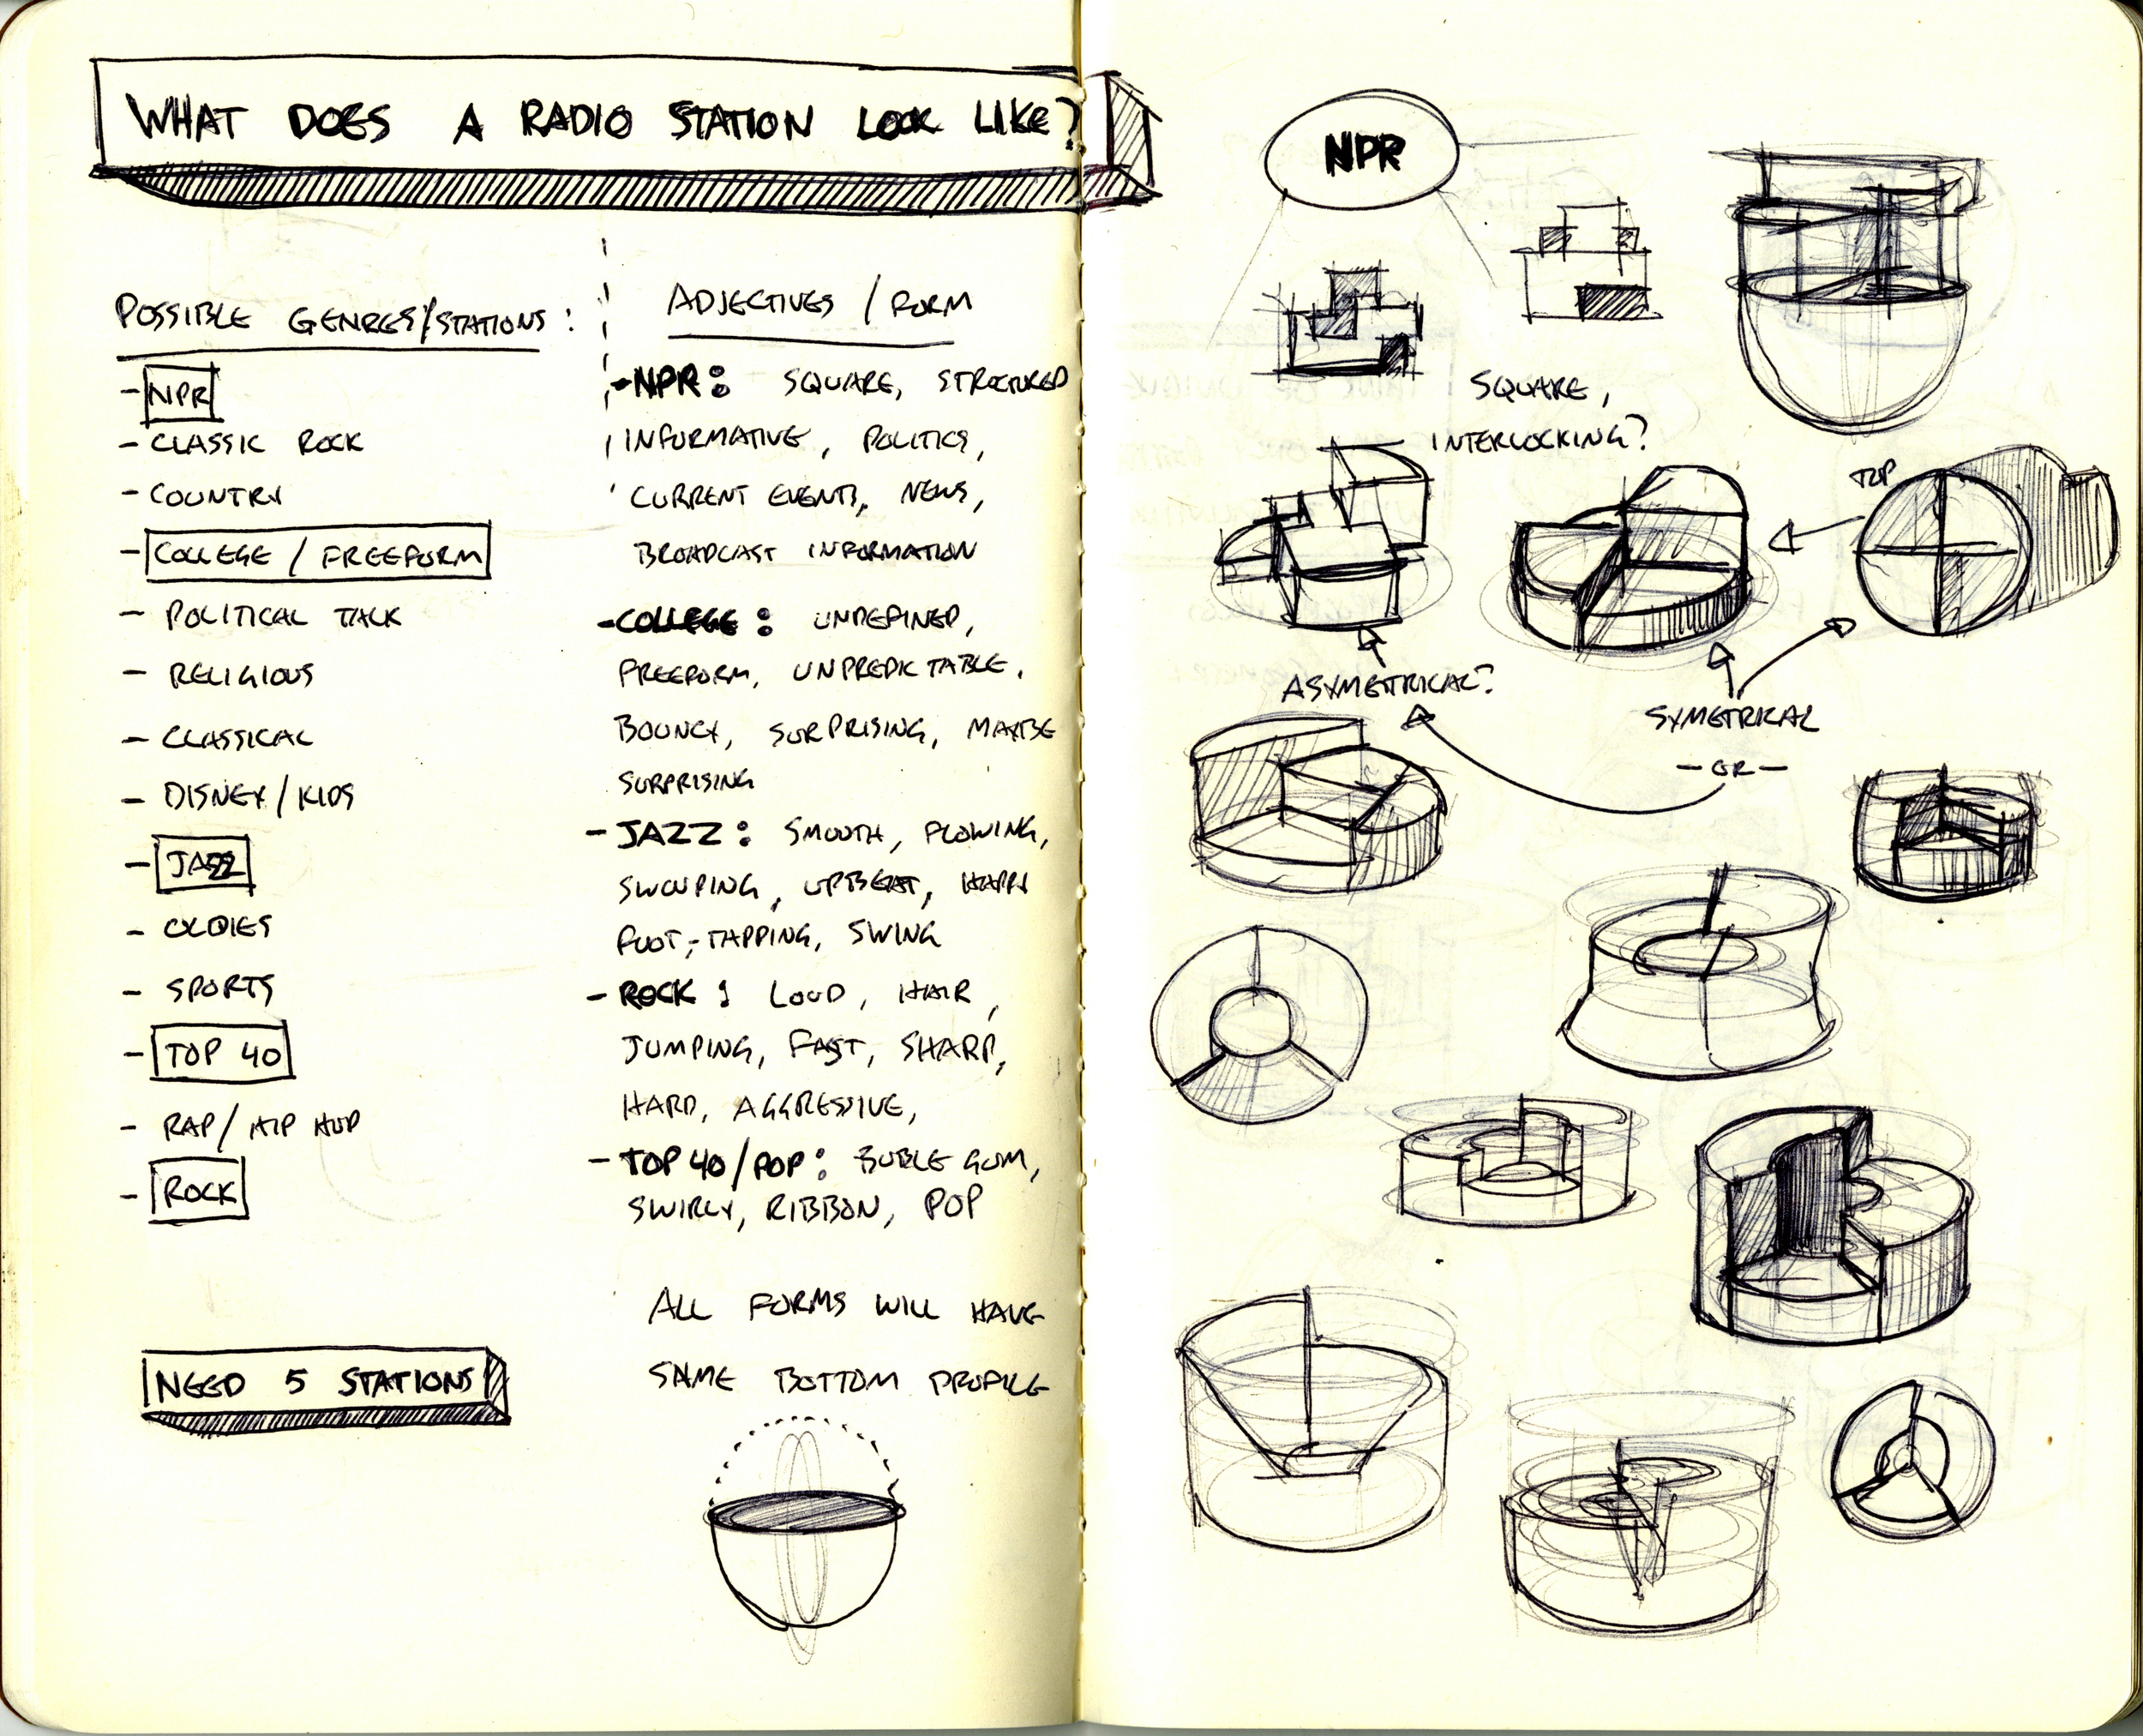 WHAT DOES A RADIO STATION LOOK LIKE?
POSSIBLE GENRES/STATIONS:
- NPR
- CLASSIC ROCK
- COUNTRY
- COLLEGE / FREEFORM
- POLITICAL TALK
- RELIGIOUS
- CLASSICAL
- DISNEY/KIDS
- JAZZ
- OLDIES
- SPORTS
- TOP 40
- RAP/HIP HOP
- ROCK
NEED 5 STATIONS
ADJECTIVES / FORM
- NPR: SQUARE, STRUCTURED
INFORMATIVE, POLITICS,
CURRENT EVENTS, NEWS,
BROADCAST INFORMATION
- COLLEGE: UNDEFINED,
FREEFORM, UNPREDICTABLE.
BOUNCY, SURPRISING, MAYBE
SURPRISING
- JAZZ: SMOOTH, FLOWING,
SWOUPING, UPBEAT, HAPPY
FOOT-TAPPING, SWING
- ROCK: LOUD, HAIR,
JUMPING, FAST, SHARP,
HARD, AGGRESSIVE,
- TOP 40/POP: BUBLE GUM,
SWIRLY, RIBBON, POP
ALL FORMS WILL HAVE
SAME BOTTOM PROFILE
NPR
SQUARE,
INTERLOCKING?
TOP
ASYMETRICAL?
SYMETRICAL
- OR -